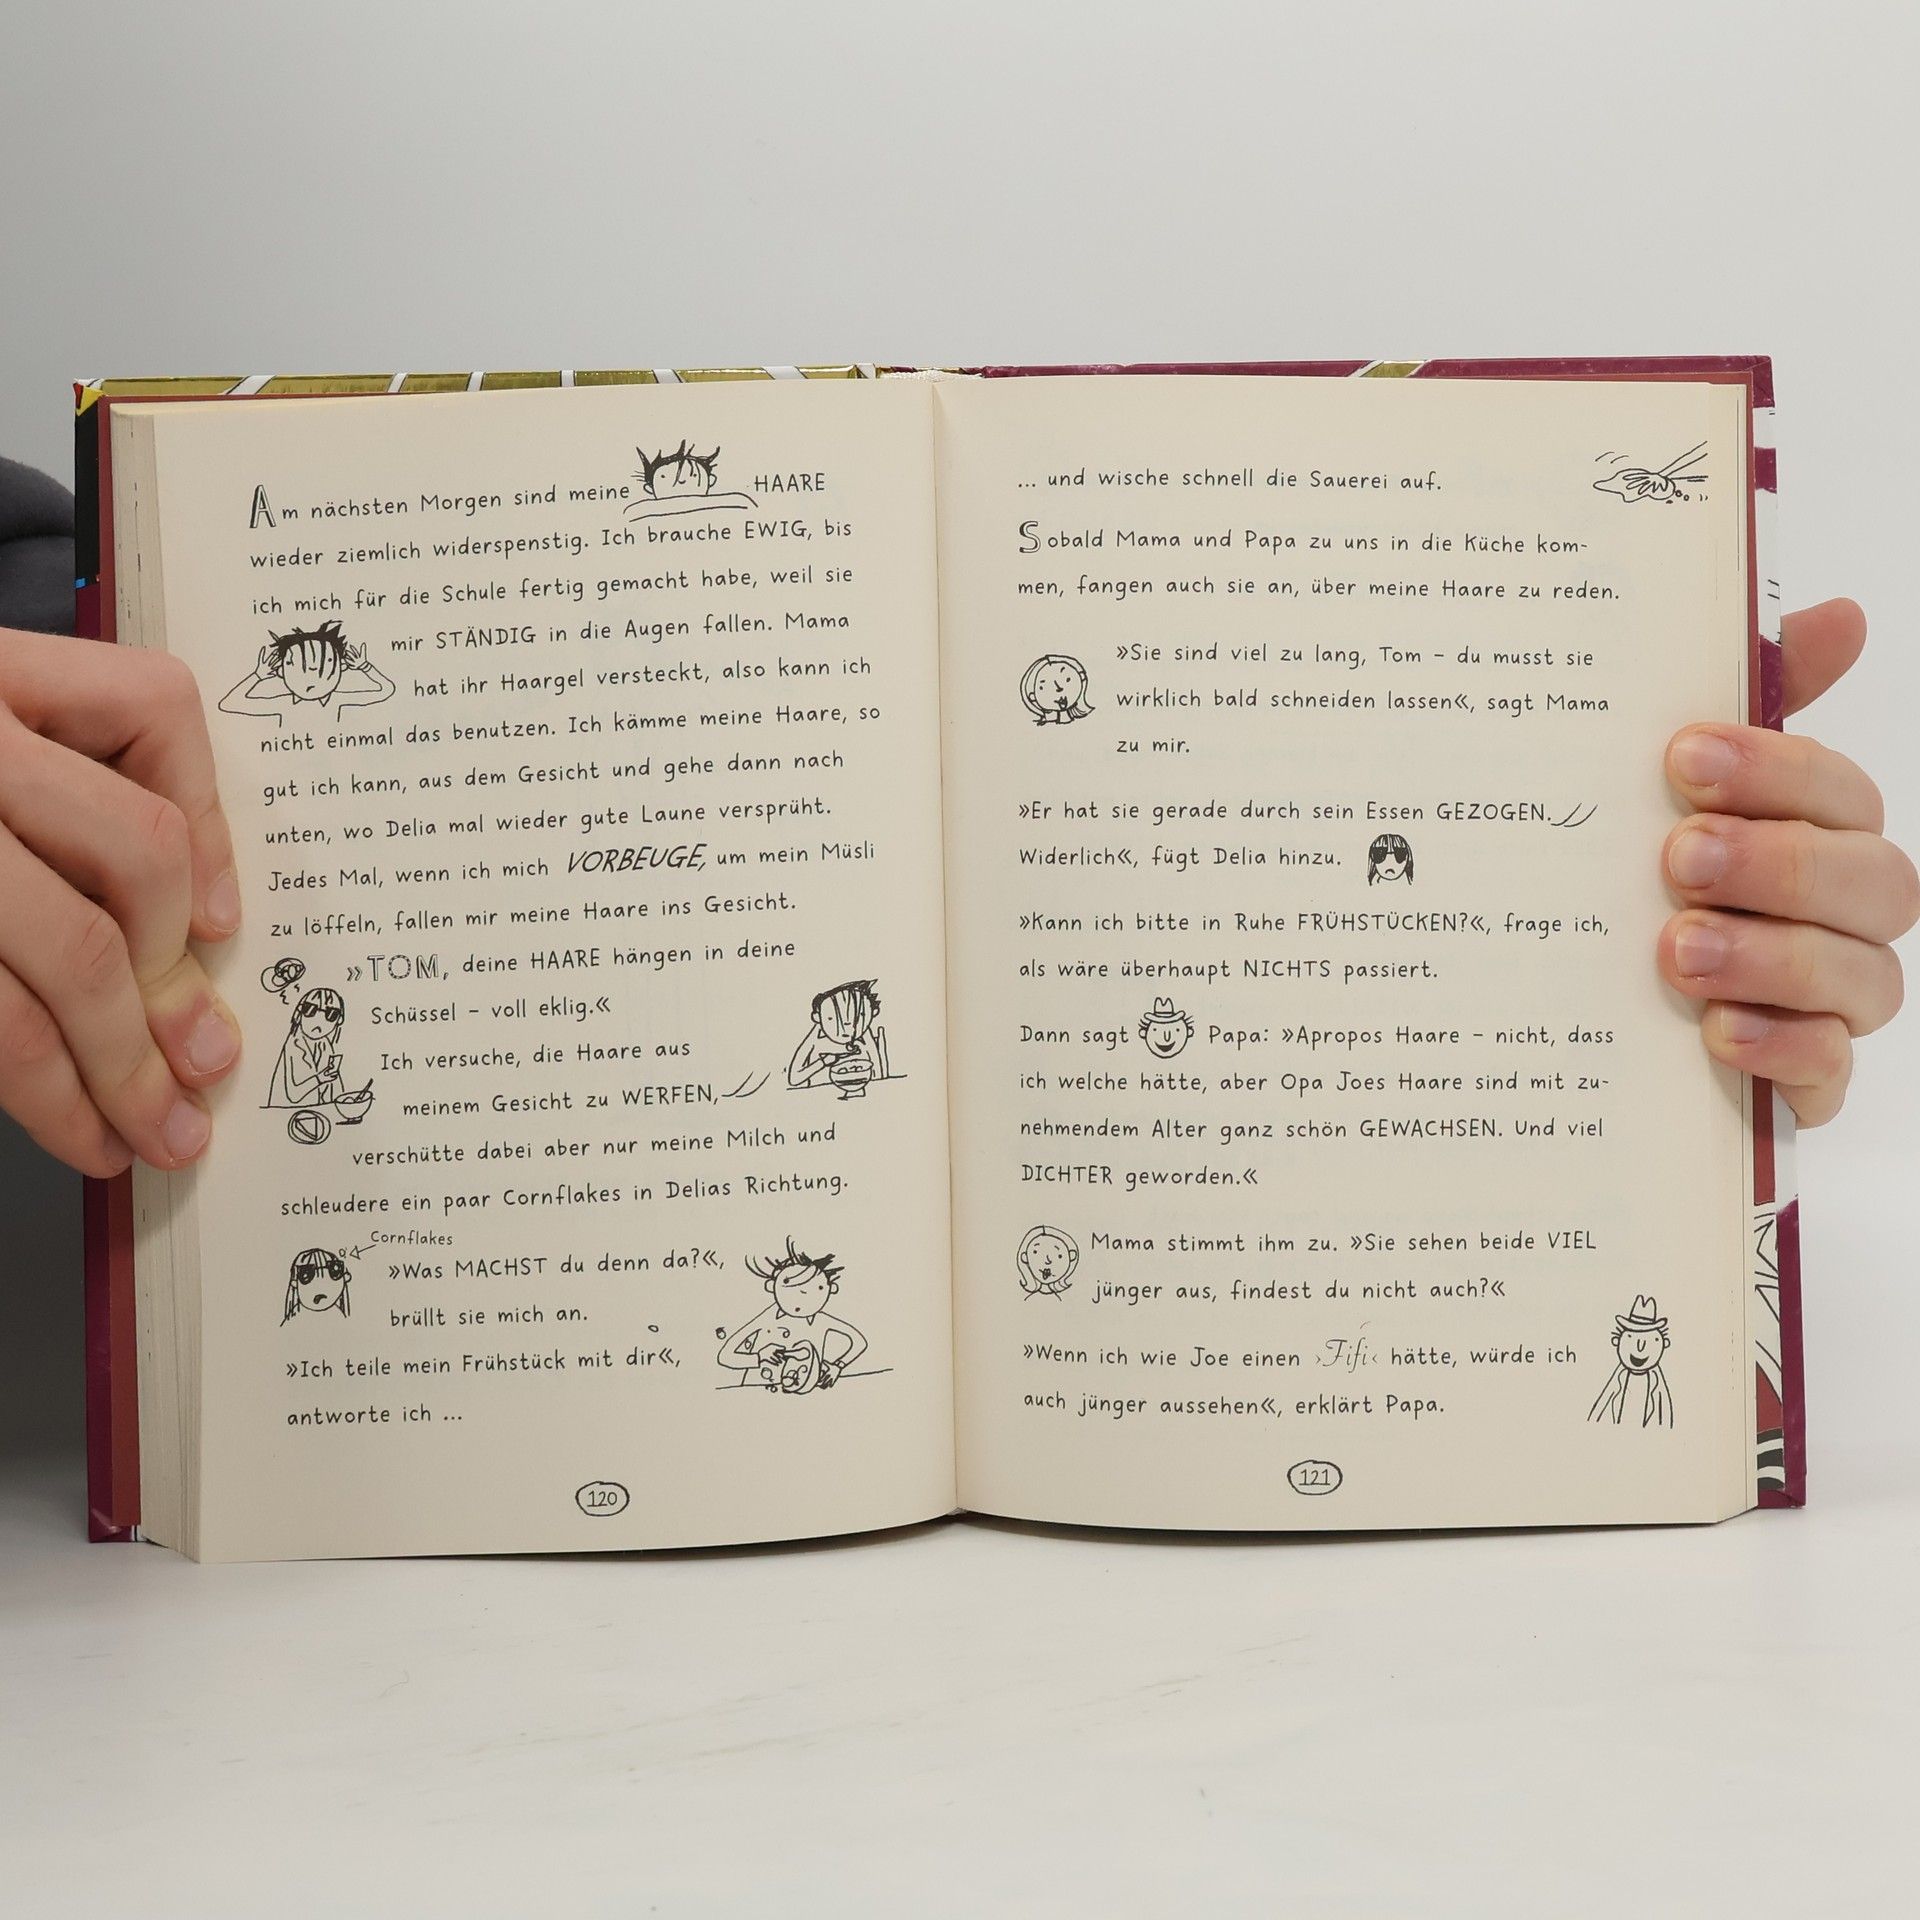 Am nächsten Morgen sind meine HAARE
wieder ziemlich widerspenstig. Ich brauche EWIG, bis
ich mich für die Schule fertig gemacht habe, weil sie
mir STÄNDIG in die Augen fallen. Mama
hat ihr Haargel versteckt, also kann ich
nicht einmal das benutzen. Ich kämme meine Haare, so
gut ich kann, aus dem Gesicht und gehe dann nach
unten, wo Delia mal wieder gute Laune versprüht.
Jedes Mal, wenn ich mich VORBEUGE, um mein Müsli
zu löffeln, fallen mir meine Haare ins Gesicht.
»TOM, deine HAARE hängen in deine
Schüssel – voll eklig.«
Ich versuche, die Haare aus
meinem Gesicht zu WERFEN,
verschütte dabei aber nur meine Milch und
schleudere ein paar Cornflakes in Delias Richtung.
Cornflakes
»Was MACHST du denn da?«,
brüllt sie mich an.
»Ich teile mein Frühstück mit dir«,
antworte ich ...
120
... und wische schnell die Sauerei auf.
Sobald Mama und Papa zu uns in die Küche kom-
men, fangen auch sie an, über meine Haare zu reden.
»Sie sind viel zu lang, Tom – du musst sie
wirklich bald schneiden lassen«, sagt Mama
zu mir.
»Er hat sie gerade durch sein Essen GEZOGEN.
Widerlich«, fügt Delia hinzu.
»Kann ich bitte in Ruhe FRÜHSTÜCKEN?«, frage ich,
als wäre überhaupt NICHTS passiert.
Dann sagt Papa: »Apropos Haare – nicht, dass
ich welche hätte, aber Opa Joes Haare sind mit zu-
nehmendem Alter ganz schön GEWACHSEN. Und viel
DICHTER geworden.«
Mama stimmt ihm zu. »Sie sehen beide VIEL
jünger aus, findest du nicht auch?«
»Wenn ich wie Joe einen ›Fifi‹ hätte, würde ich
auch jünger aussehen«, erklärt Papa.
121